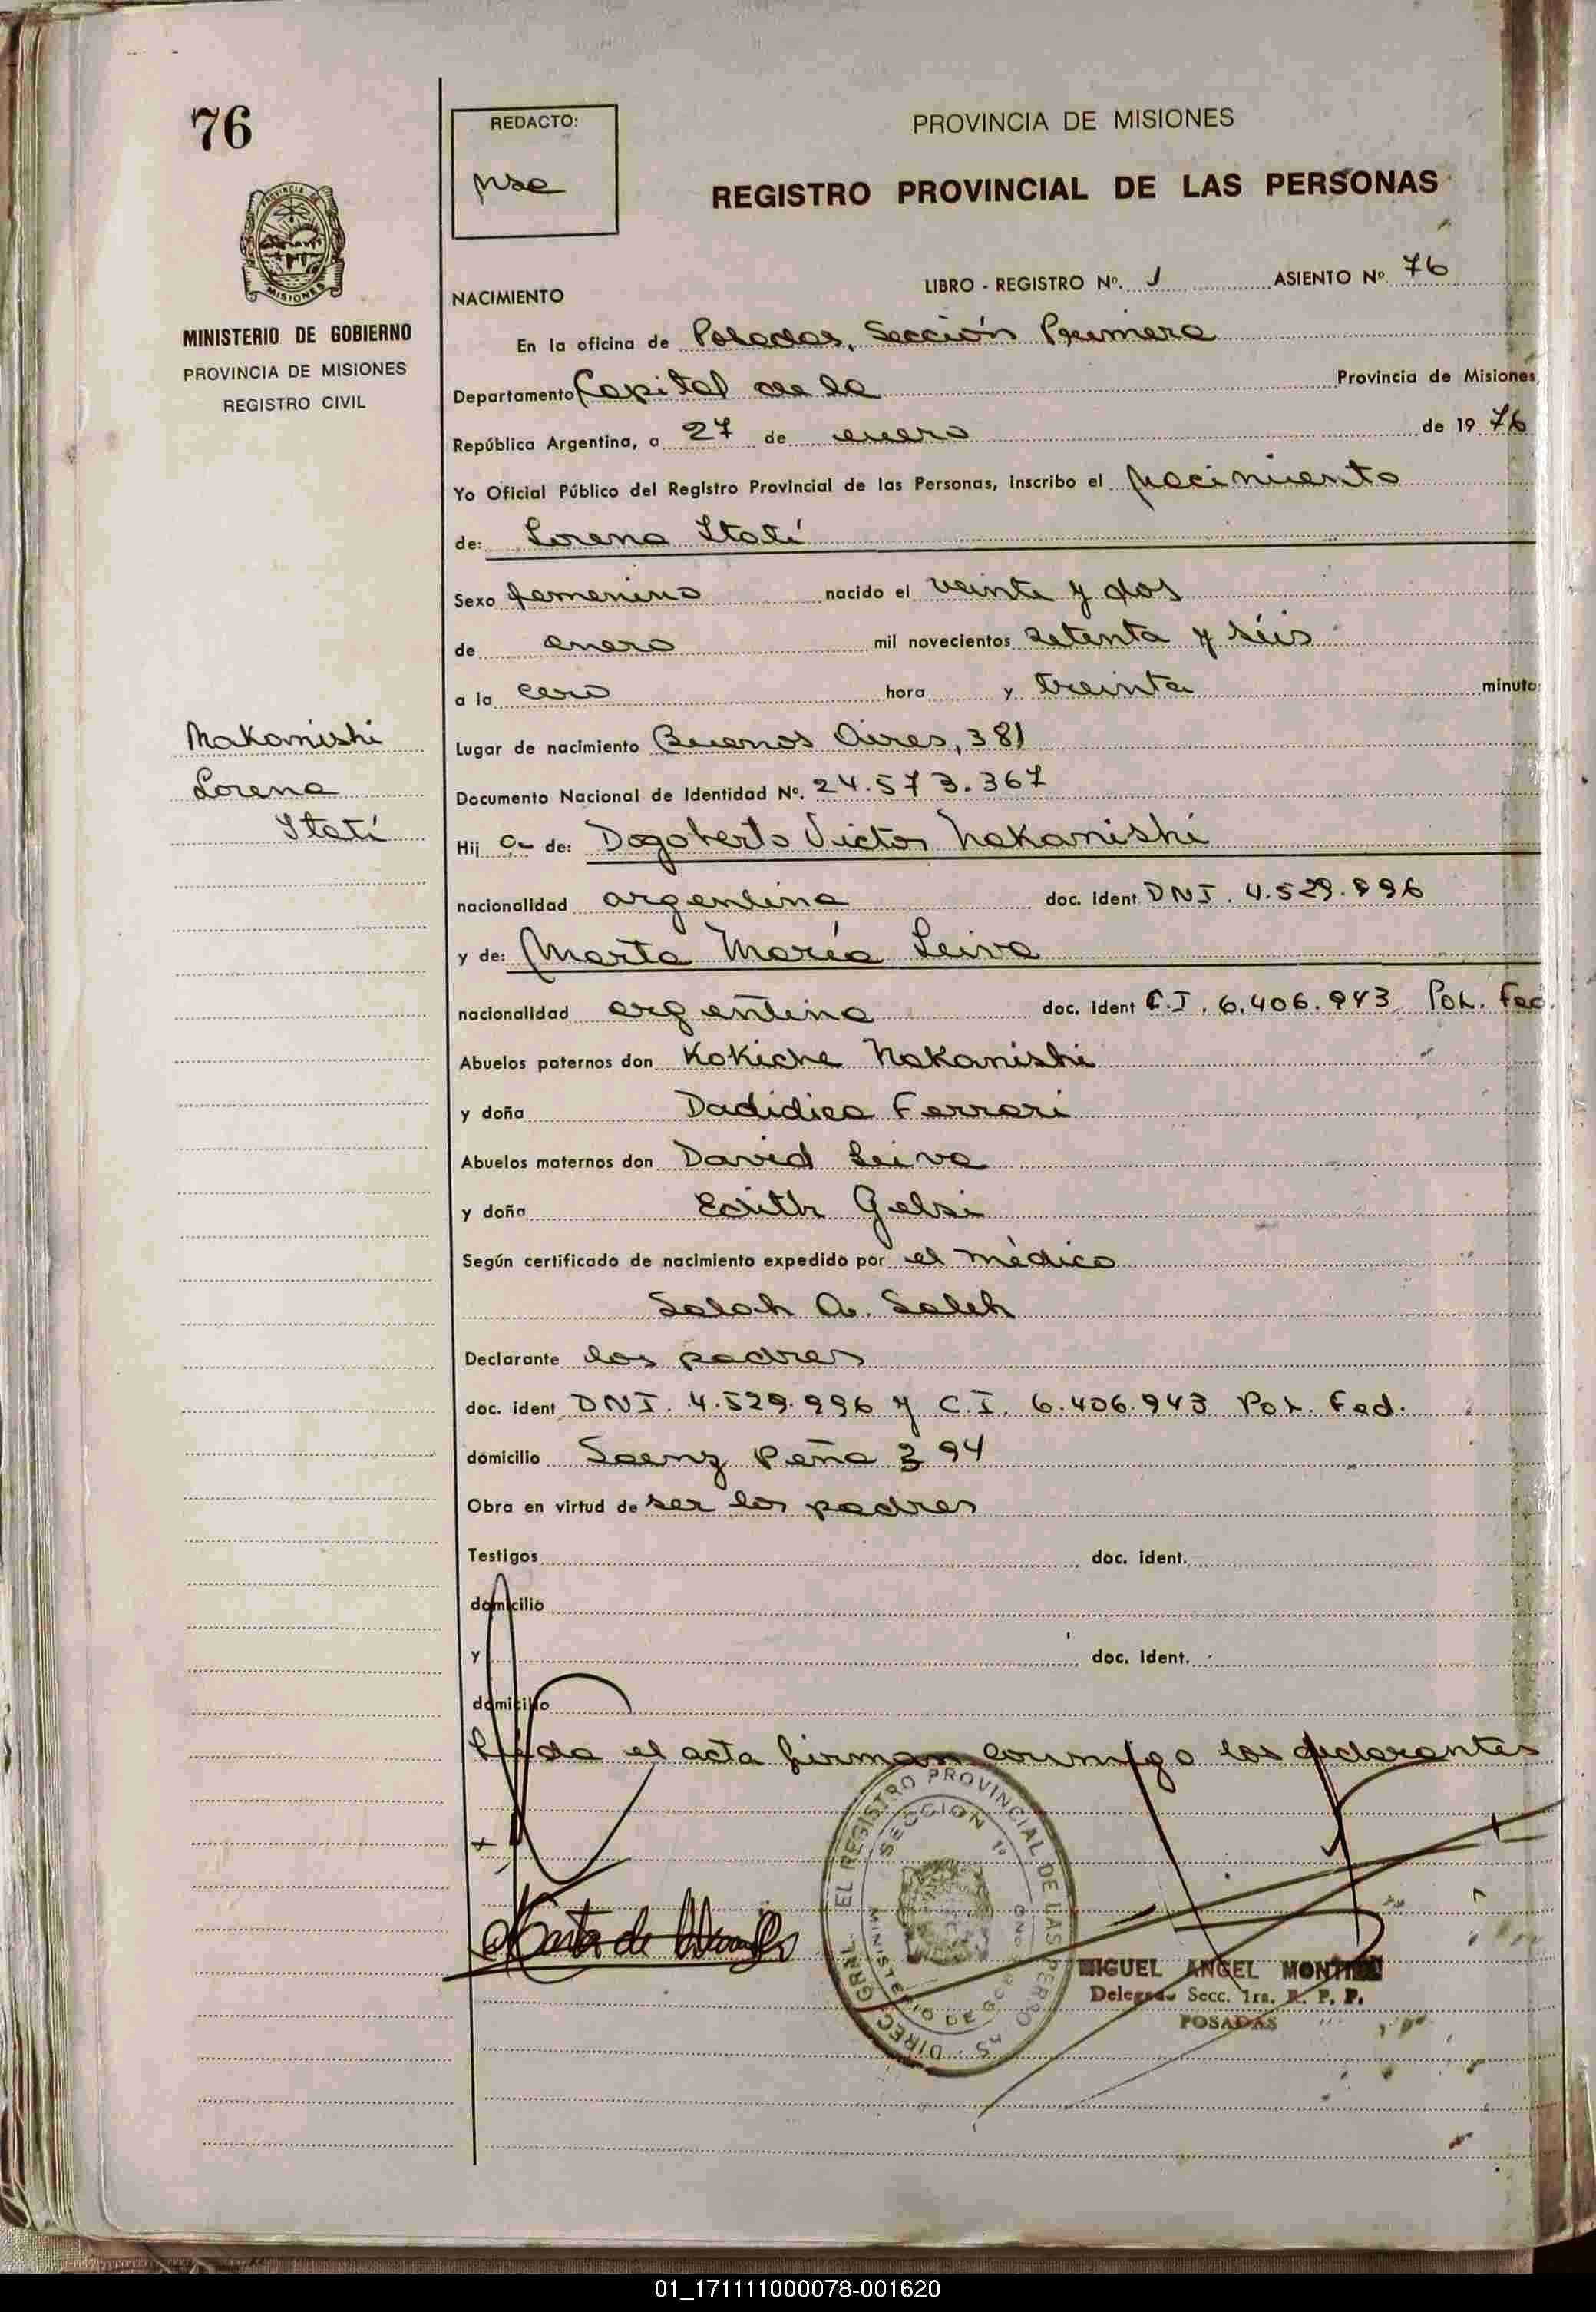 76
REDACTO:
PROVINCIA DE MISIONES
REGISTRO PROVINCIAL DE LAS PERSONAS
PROVINCIA DE
MISIONES
NACIMIENTO LIBRO - REGISTRO Nº. 1 ASIENTO Nº 76
MINISTERIO DE GOBIERNO
PROVINCIA DE MISIONES
REGISTRO CIVIL
En la oficina de Posadas, Sección Primera
Departamento Capital de la Provincia de Misiones,
República Argentina, a 27 de enero de 19 76
Yo Oficial Público del Registro Provincial de las Personas, inscribo el Nacimiento
de: Lorena Itatí
Sexo femenino nacido el veinte y dos
de enero mil novecientos setenta y séis
a la cero hora y treinta minuto
Nakanishi
Lorena
Itatí
Lugar de nacimiento Buenos Aires, 381
Documento Nacional de Identidad Nº. 24.573.367
Hij a de: Dogoberto Victor Nakanishi
nacionalidad argentina doc. Ident DNI. 4.529.996
y de: Marta María Leiva
nacionalidad argentina doc. Ident C.I. 6.406.943 Pol. Fed.
Abuelos paternos don Kokiche Nakanishi
y doña Dadidica Ferrari
Abuelos maternos don David Leiva
y doña Edith Gelsi
Según certificado de nacimiento expedido por el médico
Salah A. Saleh
Declarante los padres
doc. ident DNI. 4.529.996 y C.I. 6.406.943 Pol. Fed.
domicilio Saenz Peña 394
Obra en virtud de ser los padres
Testigos doc. ident.
domicilio
y doc. ident.
domicilio
Leída el acta firman conmigo los declarantes
DIREC. GRAL. DEL REGISTRO PROVINCIAL DE LAS PERSONAS
SECCION 1ª
MINISTERIO DE GOBIERNO
Marta de
MIGUEL ANGEL MONTIEL
Delegado Secc. 1ra. R. P. P.
POSADAS
01_171111000078-001620